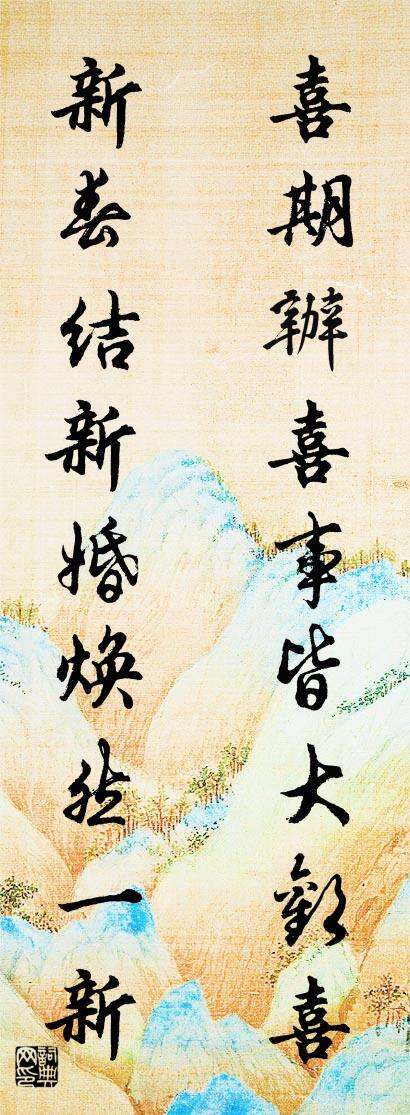 喜期辦喜事皆大歡喜
新春結新婚煥然一新
詞典网印